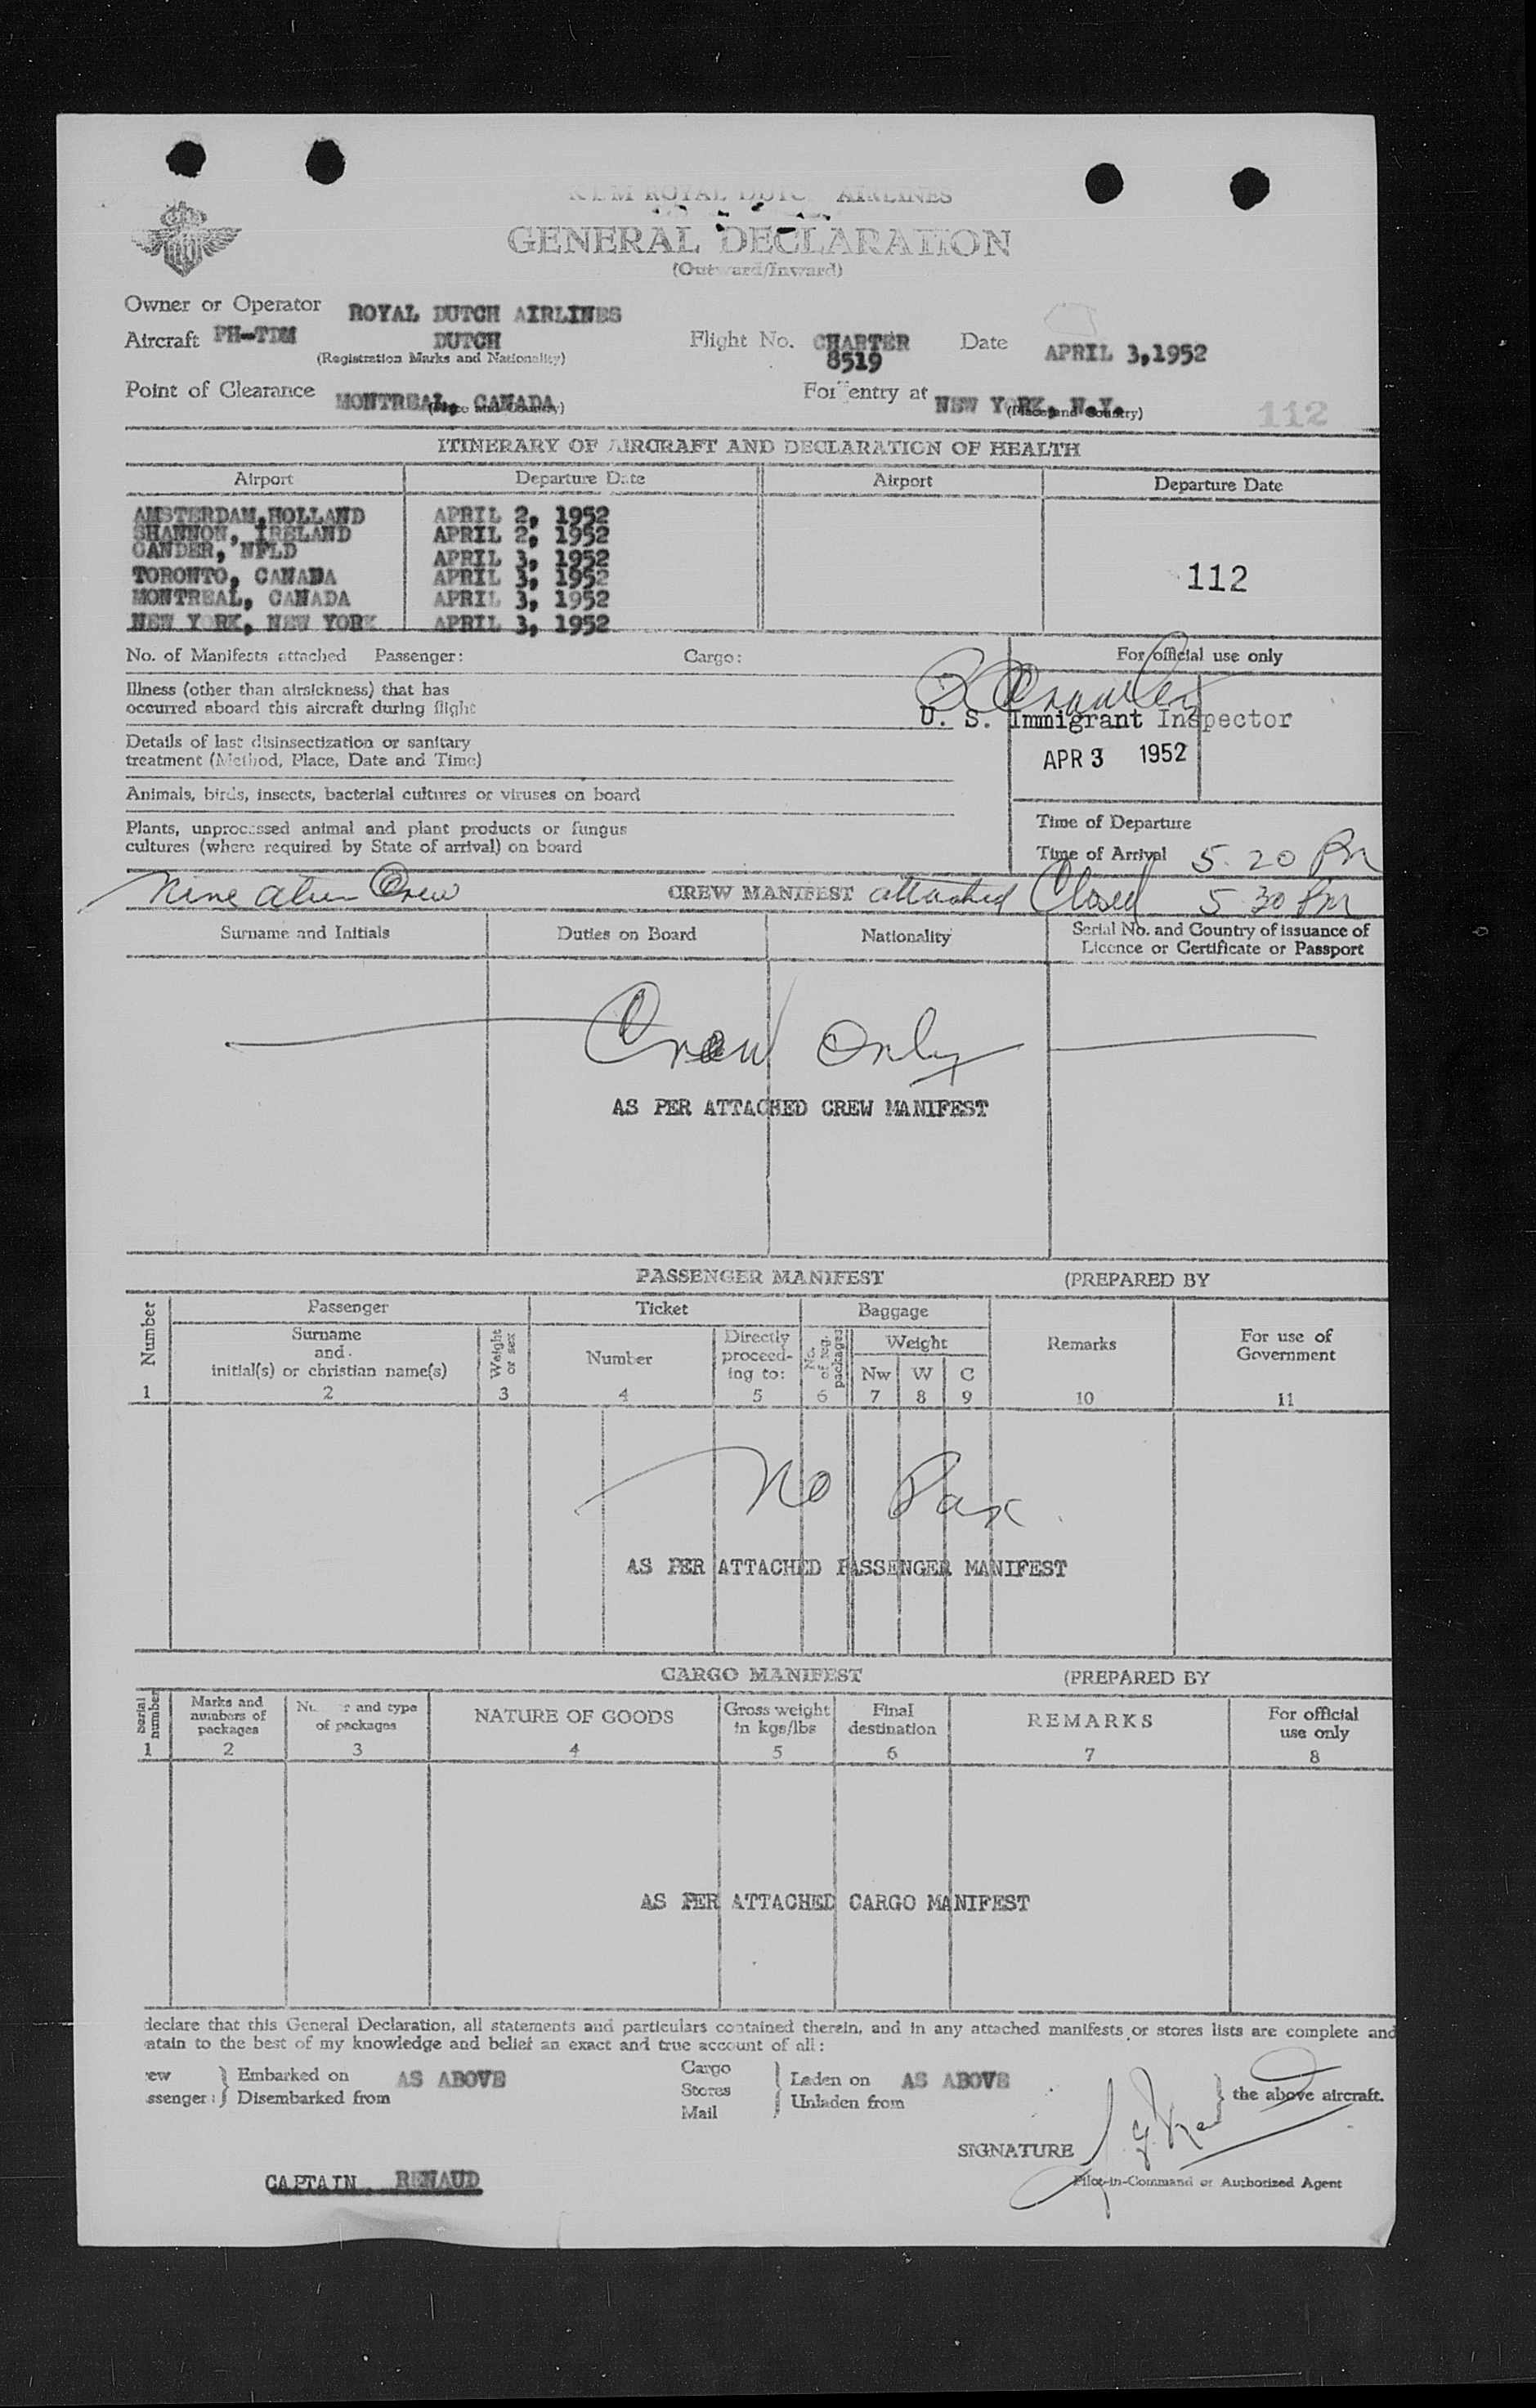 KLM ROYAL DUTC AIRLINES
GENERAL DECLARATION
(Outward/Inward)
Owner or Operator ROYAL DUTCH AIRLINES
Aircraft PH-TDM DUTCH Flight No. CHARTER 8519 Date APRIL 3,1952
(Registration Marks and Nationality)
Point of Clearance MONTREAL, CANADA For entry at NEW YORK, N.Y.
(Place and Country) (Place and Country) 112
ITINERARY OF AIRCRAFT AND DECLARATION OF HEALTH
Airport Departure Date Airport Departure Date
AMSTERDAM,HOLLAND APRIL 2, 1952
SHANNON, IRELAND APRIL 2, 1952
GANDER, NFLD APRIL 3, 1952
TORONTO, CANADA APRIL 3, 1952 112
MONTREAL, CANADA APRIL 3, 1952
NEW YORK, NEW YORK APRIL 3, 1952
No. of Manifests attached Passenger: Cargo: For official use only
Illness (other than airsickness) that has
occurred aboard this aircraft during flight
U. S. Immigrant Inspector
Details of last disinsectization or sanitary
treatment (Method, Place, Date and Time) APR 3 1952
Animals, birds, insects, bacterial cultures or viruses on board
Plants, unprocessed animal and plant products or fungus
cultures (where required by State of arrival) on board
Time of Departure
Time of Arrival 5.20 Pm
Nine alien Crew CREW MANIFEST attached Closed 5 30 Pm
Surname and Initials Duties on Board Nationality Serial No. and Country of issuance of
Licence or Certificate or Passport
Crew Only
AS PER ATTACHED CREW MANIFEST
PASSENGER MANIFEST (PREPARED BY
Number Passenger Ticket Baggage Remarks For use of Government
Surname and initial(s) or christian name(s) Weight or sex Number Directly proceed-ing to: No. of reg. packages Weight
Nw W C
1 2 3 4 5 6 7 8 9 10 11
No Pax
AS PER ATTACHED PASSENGER MANIFEST
CARGO MANIFEST (PREPARED BY
Serial number Marks and numbers of packages Nu r and type of packages NATURE OF GOODS Gross weight in kgs/lbs Final destination REMARKS For official use only
1 2 3 4 5 6 7 8
AS PER ATTACHED CARGO MANIFEST
declare that this General Declaration, all statements and particulars contained therein, and in any attached manifests or stores lists are complete and
atain to the best of my knowledge and belief an exact and true account of all:
ew Embarked on AS ABOVE Cargo Laden on AS ABOVE
ssenger: Disembarked from Stores Unladen from the above aircraft.
Mail
SIGNATURE
CAPTAIN. RENAUD
Pilot-in-Command or Authorized Agent